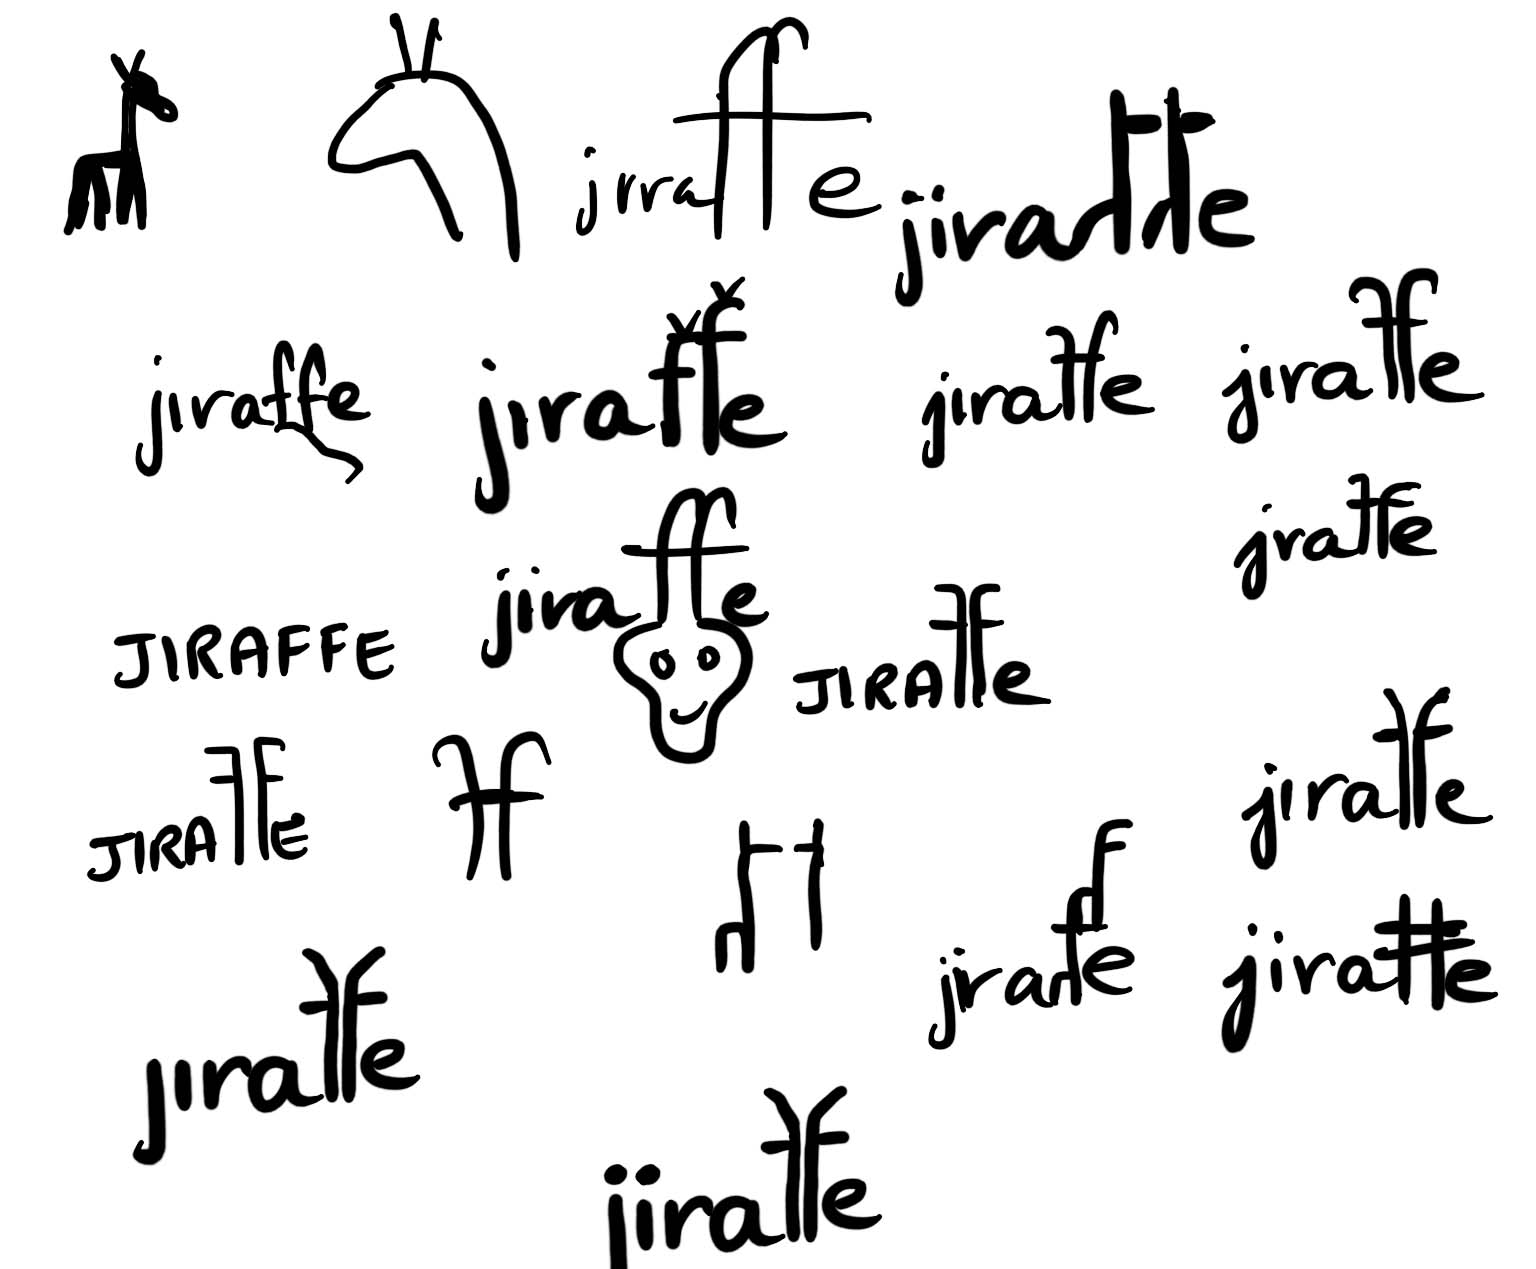 jiraffe
jiraffe
jiraffe
jiraffe
jiraffe
jiraffe
jraffe
jiraffe
JIRAFFE
JIRAffe
JIRAFFE
ff
jiraffe
ff
jiraffe
jiraffe
jiraffe
jiraffe